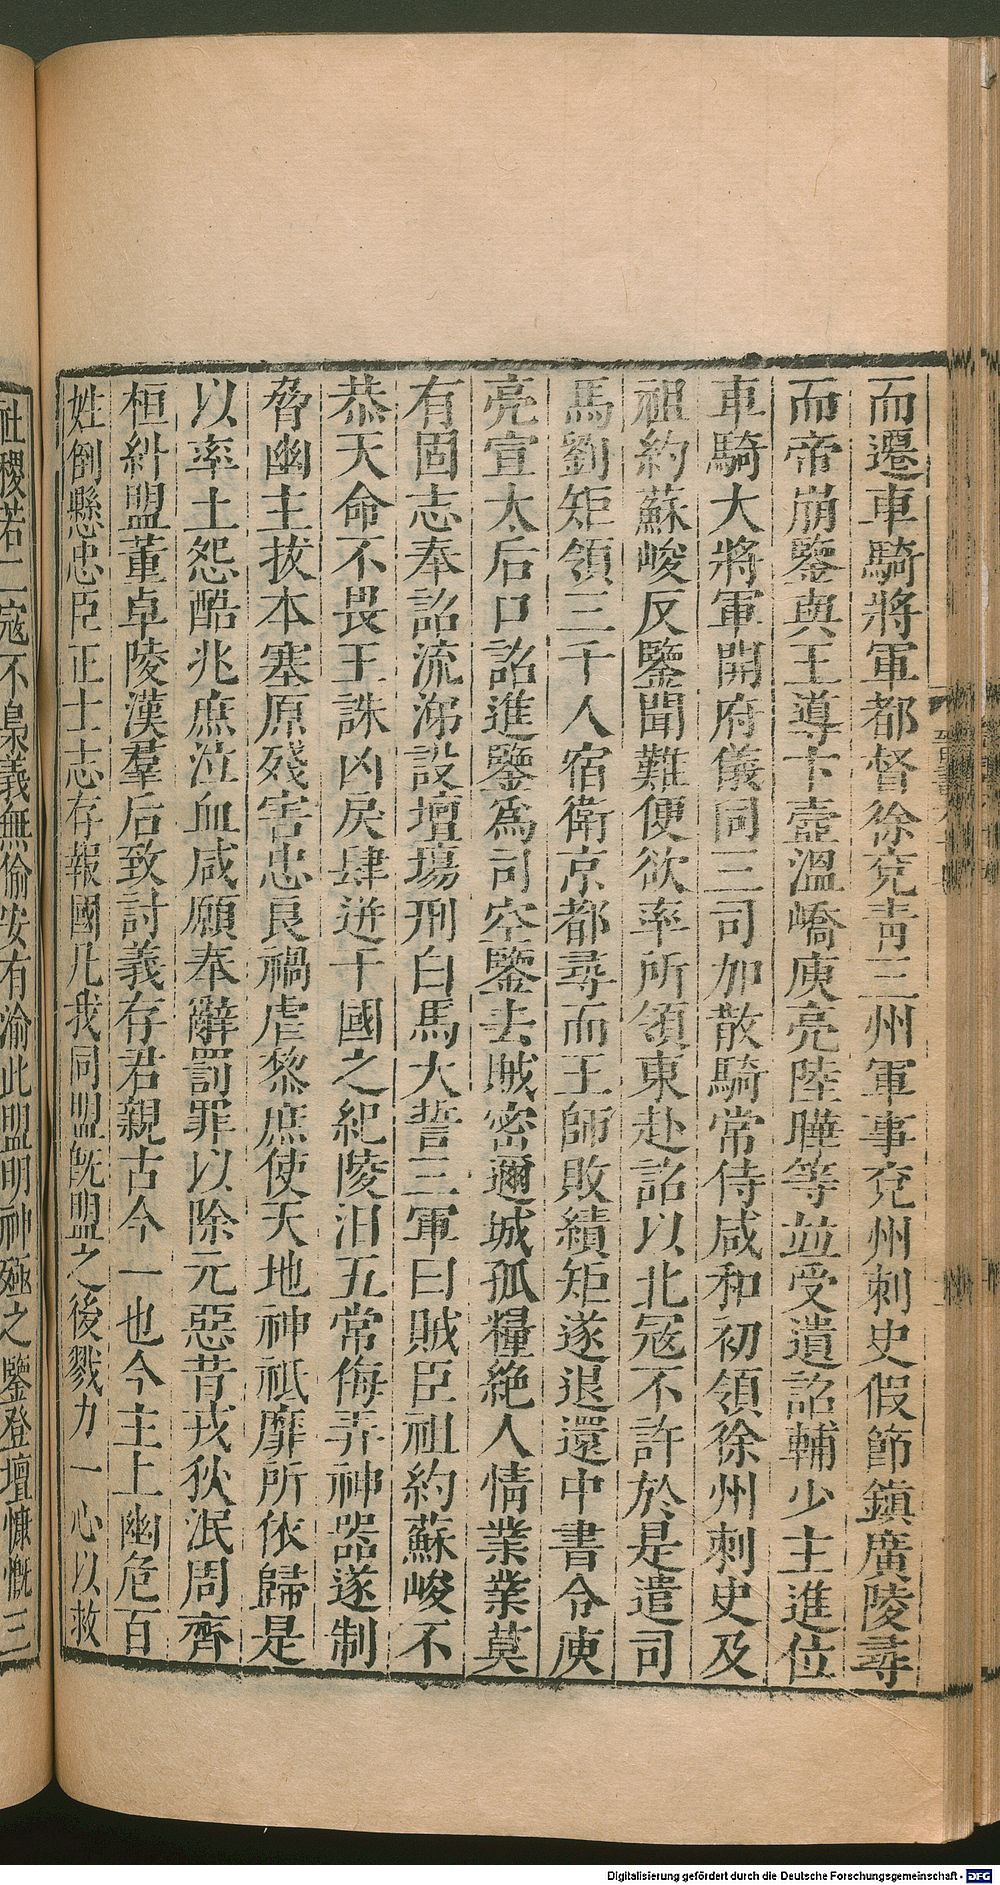 而遷車騎將軍都督徐兗青三州軍事兗州刺史假節鎮廣陵尋
而帝崩鑒與王導卞壼溫嶠庾亮陸曄等並受遺詔輔少主進位
車騎大將軍開府儀同三司加散騎常侍咸和初領徐州刺史及
祖約蘇峻反鑒聞難便欲率所領東赴詔以北寇不許於是遣司
馬劉矩領三千人宿衛京都尋而王師敗績矩遂退還中書令庾
亮宣太后口詔進鑒爲司空鑒去賊密邇城孤糧絶人情業業莫
有固志奉詔流涕設壇場刑白馬大誓三軍曰賊臣祖約蘇峻不
恭天命不畏王誅凶戾肆逆干國之紀陵汨五常侮弄神器遂制
脅幽主拔本塞原殘害忠良禍虐黎庶使天地神祇靡所依歸是
以率土怨酷兆庶泣血咸願奉辭罰罪以除元惡昔戎狄泯周齊
桓糾盟董卓陵漢羣后致討義存君親古今一也今主上幽危百
姓倒懸忠臣正士志存報國凡我同盟旣盟之後戮力一心以救
社稷若二寇不梟義無偷安有渝此盟明神殛之鑒登壇慷慨三
Digitalisierung gefördert durch die Deutsche Forschungsgemeinschaft - DFG